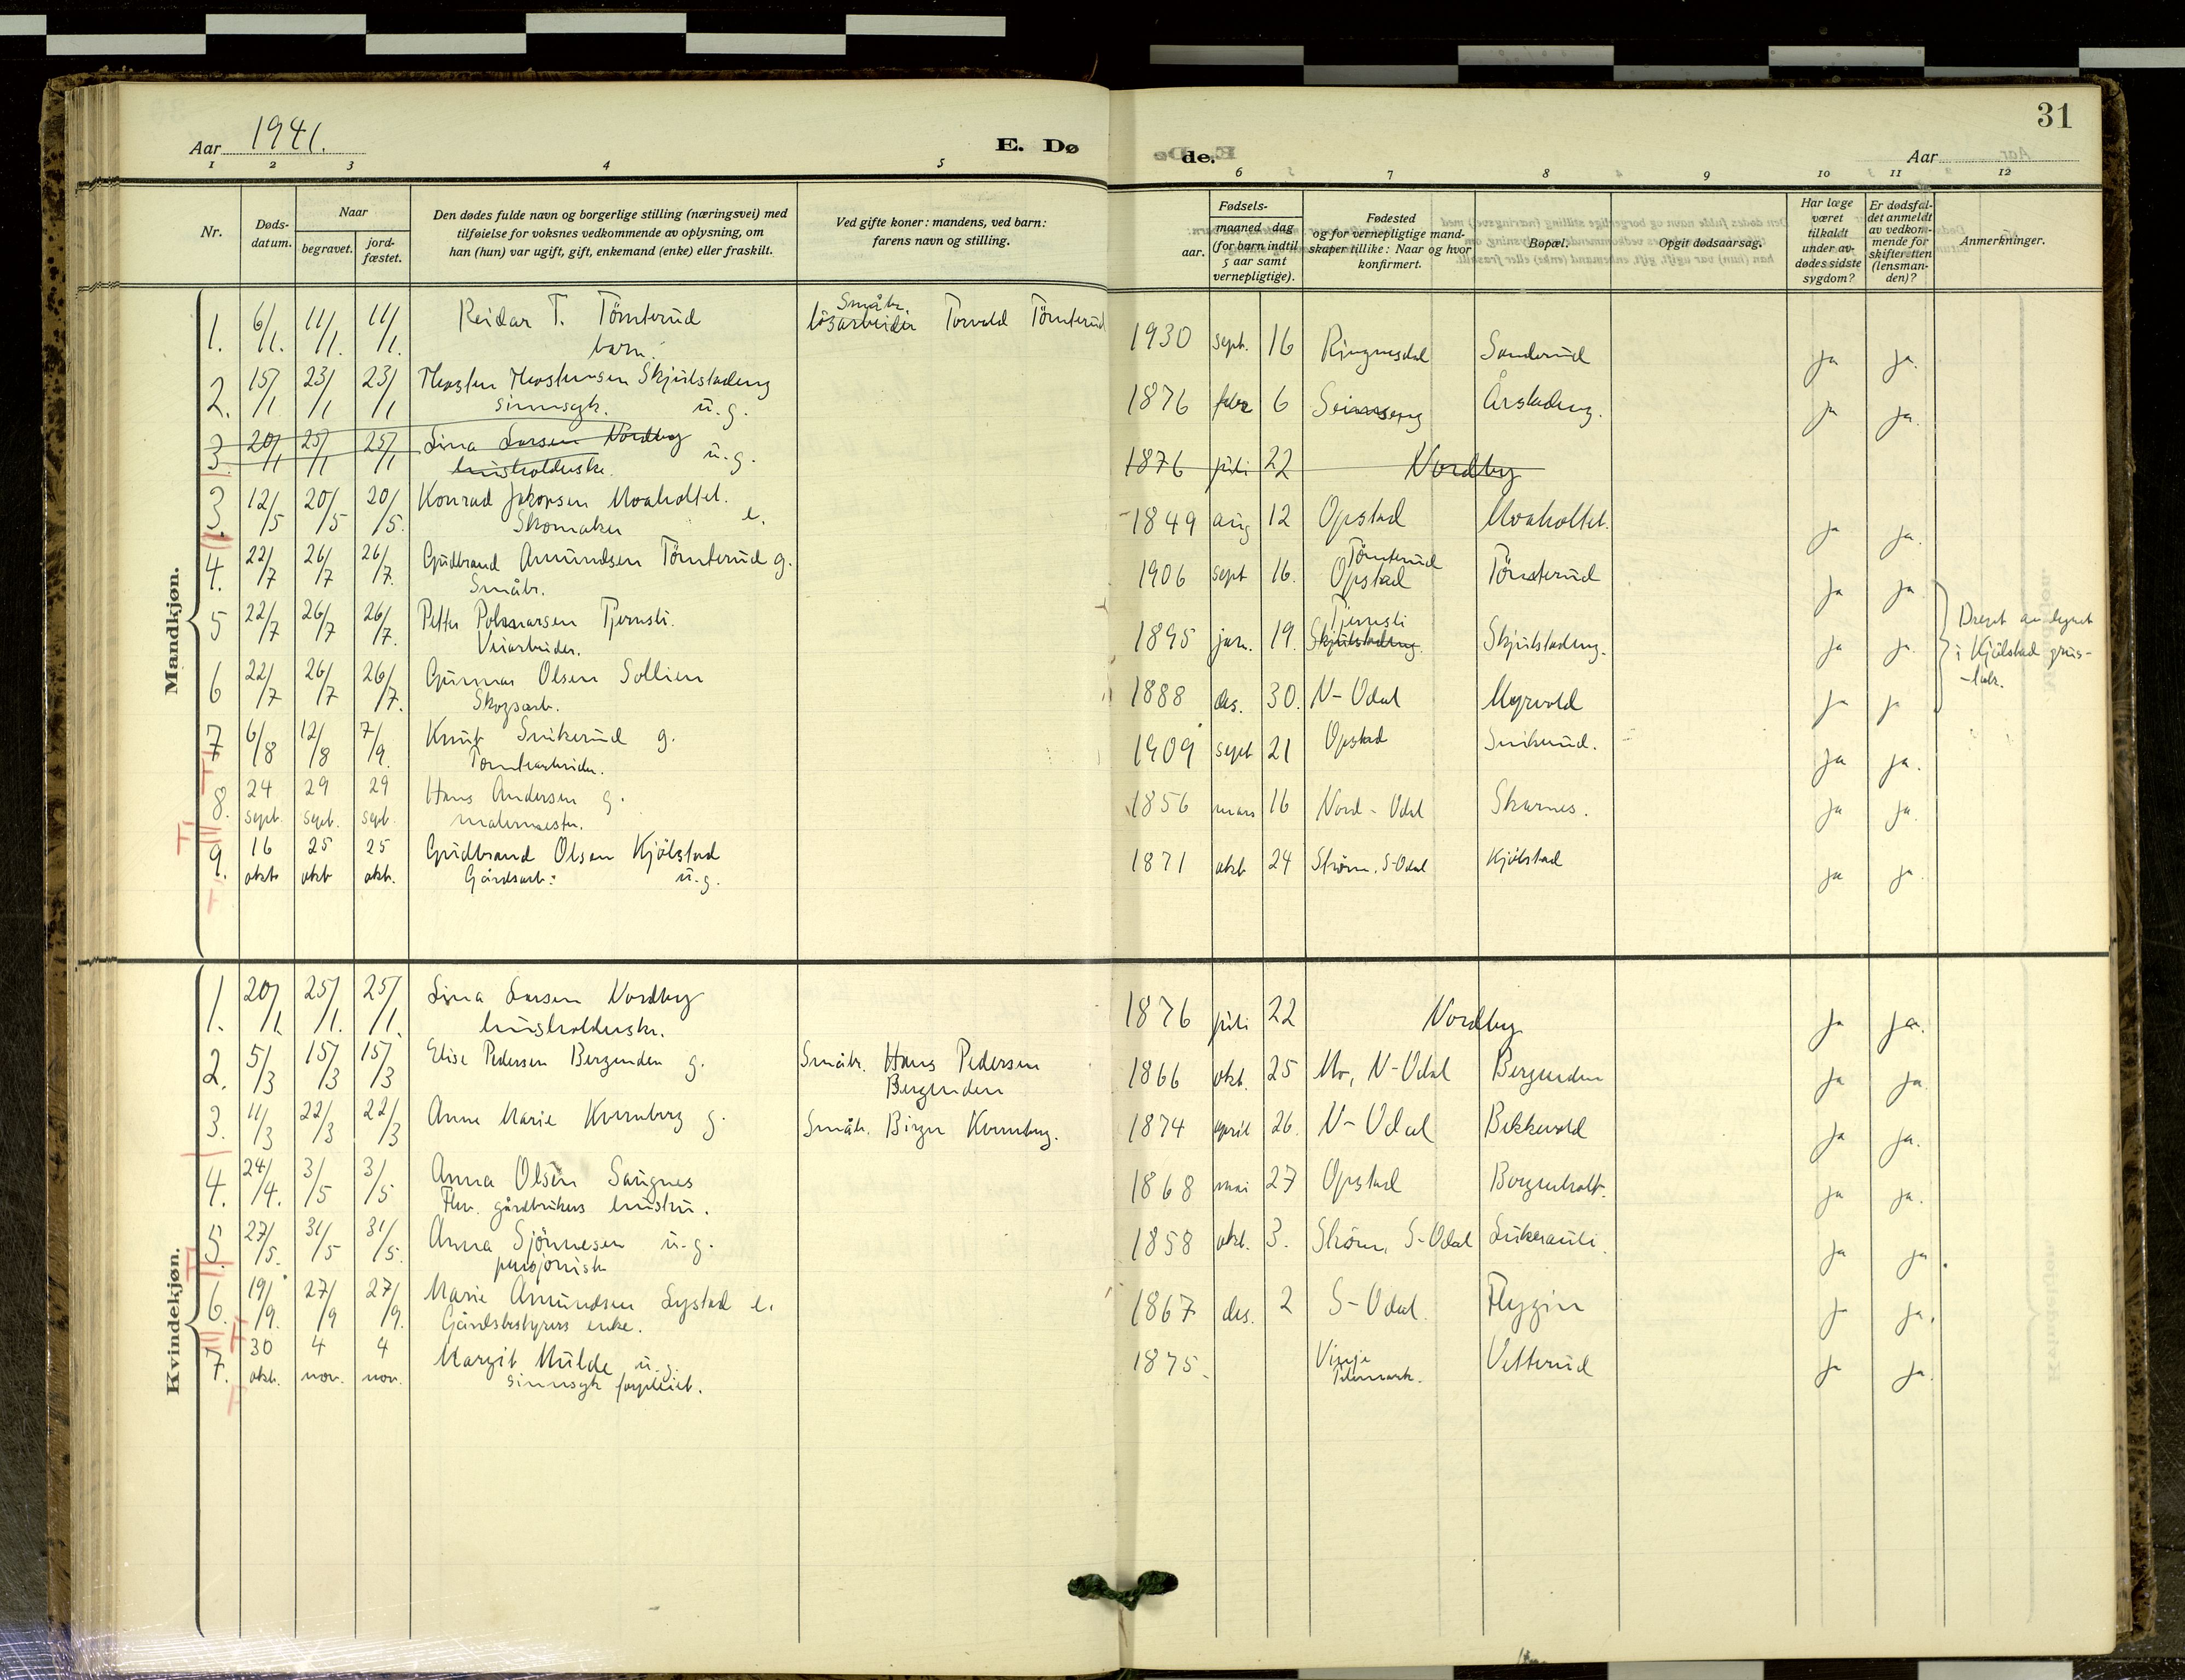 31
Aar 1941.
E. Dø
de.
Aar
1 2 3 4 5 6 7 8 9 10 11 12
Nr.
Døds-
datum.
Naar
begravet.
jord-
fæstet.
Den dødes fulde navn og borgerlige stilling (næringsvei) med
tilføielse for voksnes vedkommende av oplysning, om
han (hun) var ugift, gift, enkemand (enke) eller fraskilt.
Ved gifte koner: mandens, ved barn:
farens navn og stilling.
Fødsels-
aar.
maaned dag
(for barn indtil
5 aar samt
vernepligtige).
Fødested
og for vernepligtige mand-
skaper tillike: Naar og hvor
konfirmert.
Bopæl.
Opgit dødsaarsag.
Har læge
været
tilkaldt
under av-
dødes sidste
sygdom?
Er dødsfal-
det anmeldt
av vedkom-
mende for
skifteretten
(lensman-
den)?
Anmerkninger.
Mandkjøn.
Småbr.
1. 6/1. 11/1. 11/1. Reidar T. Tömterud løsarbeider Torvald Tömterud 1930 sept. 16 Ringnesdal Sanderud ja ja.
barn.
2. 15/1 23/1 23/1 Thorsten Thorstensen Skjulstadeng 1876 febr 6 Årstadeng. ja ja.
sinnsyk. u.g.
3. 20/1 25/1 25/1 Lina Larsen Nordby 1876 juli 22 Nordby
husholderske. u.g.
3. 12/5 20/5 20/5. Konrad Jakopsen Moaholtet. 1849 aug 12 Opstad Moaholtet. ja ja.
Skomaker e.
Tömterud
4. 22/7 26/7 26/7. Gudbrand Amundsen Tömterud g. 1906 sept 16. Opstad Tömterud ja ja
Småbr.
Tjernsli
5 22/7 26/7 26/7. Petter Tjernsli. 1895 jan. 19. Skjulstadeng. Skjulstadeng. ja ja.
Veiarbeider.
6 22/7 26/7 26/7. Gunnar Olsen Sollien 1888 des. 30. N-Odal Myrvold ja ja
Skogsarb.
Drept av lynet
i Kjölstad grus-
7 6/8 12/8 7/9. Knut Snikerud g. 1909 sept 21 Opstad Snikerud. ja ja.
Tomtearbeider.
8. 24 29 29 Hans Andersen g. 1856 mars 16 Nord-Odal Skarnes. ja ja.
sept. sept. sept. malermester.
9. 16 25 25 Gudbrand Olsen Kjölstad 1871 okt 24 Strøm, S-Odal Kjölstad ja ja.
okt okt okt. Gårdsarb: u.g.
Kvindekjøn.
1. 20/1. 25/1. 25/1. Lina Larsen Nordby 1876 juli 22 Nordby ja ja.
husholderske.
2. 5/3 15/3 15/3 Elise Pedersen Bergenden g. Småbr. Hans Pedersen 1866 okt. 25 Mo, N-Odal Bergenden ja ja.
Bergenden
3. 11/3 22/3 22/3 Anne Marie Kvernberg g. Småbr. Birger Kvernberg. 1874 april 26. N-Odal Bekkevold ja ja.
4. 24/4. 3/5 3/5 Anna Olsen Saugnes 1868 mai 27 Opstad Borgenholt. ja ja.
Fhv. gårdbrukers hustru.
5. 27/5. 31/5 31/5. Anna Sjönnesen u.g. 1858 okt. 3. Strøm, S-Odal ja ja.
pensjonist
6. 19/9. 27/9 27/9. Marie Amundsen Lystad e. 1867 des. 2 S-Odal. Flygin ja ja.
Gårdsbestyrers enke.
7. 30 4 4 Margit Mulde u.g. 1875. Vinje Vetterud ja ja.
okt. nov. nov. sinnsyk forpleiet. Telemark.